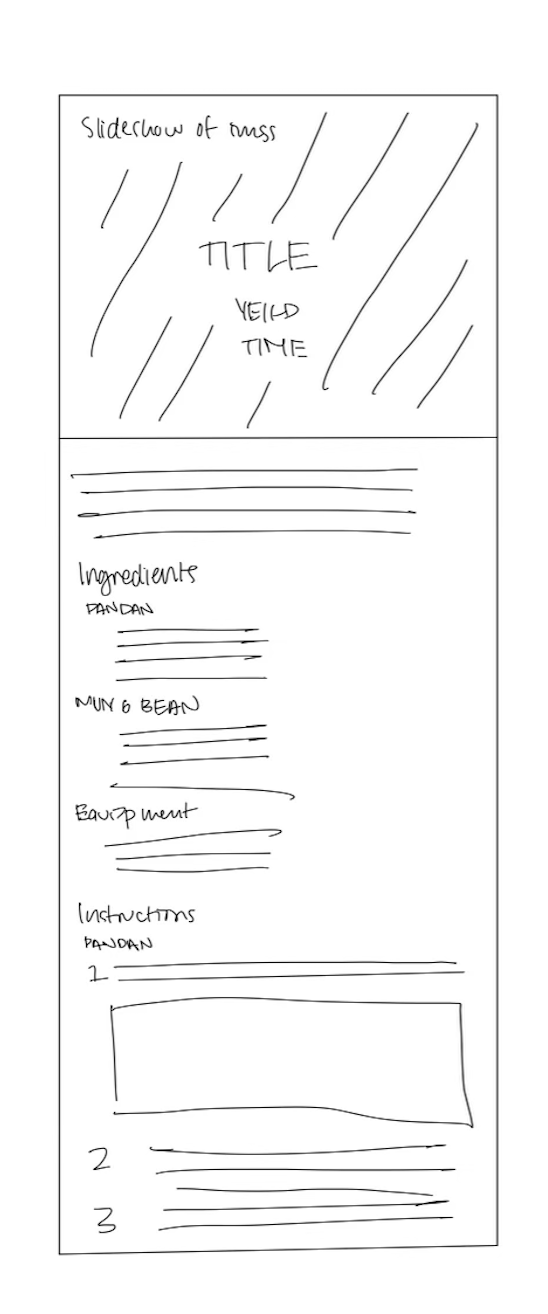 Slideshow of imgs
TITLE
YEILD
TIME
Ingredients
PANDAN
MUNG BEAN
Equipment
Instructions
PANDAN
1
2
3